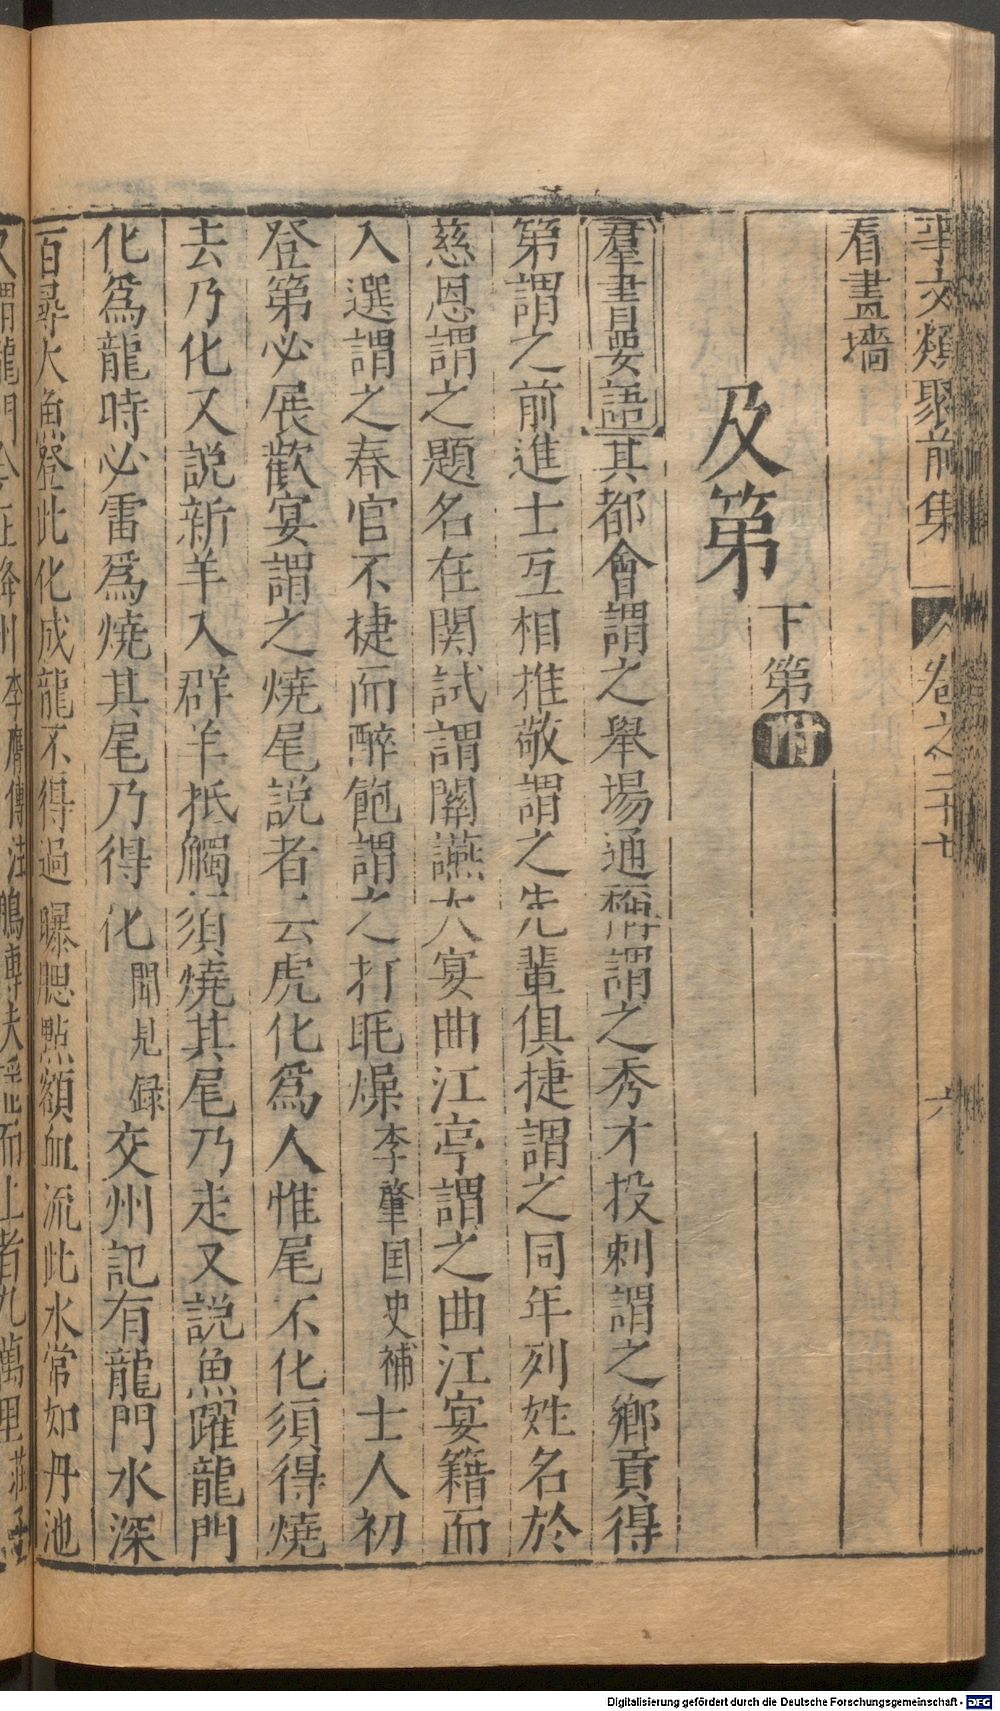 事文類聚前集 卷之二十七 六
看畫墻
及第 下第附
羣書要語其都會謂之舉場通稱謂之秀才投刺謂之鄉貢得
第謂之前進士互相推敬謂之先輩俱捷謂之同年列姓名於
慈恩謂之題名在関試謂關讌大宴曲江亭謂之曲江宴籍而
入選謂之春官不捷而醉飽謂之打毷燥李肇国史補士人初
登第必展歡宴謂之燒尾說者云虎化爲人惟尾不化須得燒
去乃化又説新羊入群羊抵觸須燒其尾乃走又説魚躍龍門
化爲龍時必雷爲燒其尾乃得化聞見録交州記有龍門水深
百尋大魚登此化成龍不得過曝腮點額血流此水常如丹池
又謂龍門今在絳州李膺傳注鵬摶扶揺而上者九萬里莊子
Digitalisierung gefördert durch die Deutsche Forschungsgemeinschaft - DFG